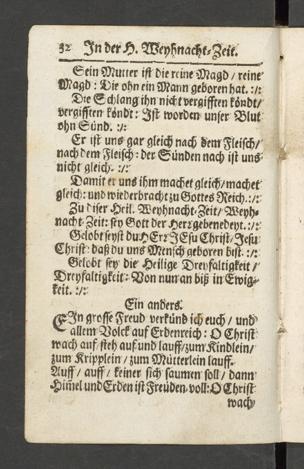 32 In der H. Weyhnacht-Zeit.
Sein Mutter ist die reine Magd / reine
Magd: Die ohn ein Mann geboren hat. :/:
Die Schlang ihn nicht vergifften köndt/
vergifften köndt: Ist worden unser Blut
ohn Sünd. :/:
Er ist uns gar gleich nach dem Fleisch/
nach dem Fleisch: der Sünden nach ist uns
nicht gleich. :/:
Damit er uns ihm machet gleich/machet
gleich: und wiederbracht zu Gottes Reich. :/:
Zu diser Heil. Weyhnacht-Zeit/ Weyh-
nacht-Zeit: sey Gott der Herr gebenedeyt. :/:
Gelobt seyst du HErr JEsu Christ/ Jesu
Christ: daß du uns Mensch geboren bist. :/:
Gelobt sey die Heilige Dreyfaltigkeit /
Dreyfaltigkeit: Von nun an biß in Ewig-
keit. :/:
Ein anders.
EIn grosse Freud verkünd ich euch / und
allem Volck auf Erdenreich: O Christ
wach auf steh auf und lauff/ zum Kindlein/
zum Kripplein / zum Mütterlein lauff.
Auff / auff / keiner sich saumen soll / dann
Him̃el und Erden ist Freuden-voll: O Christ
wach